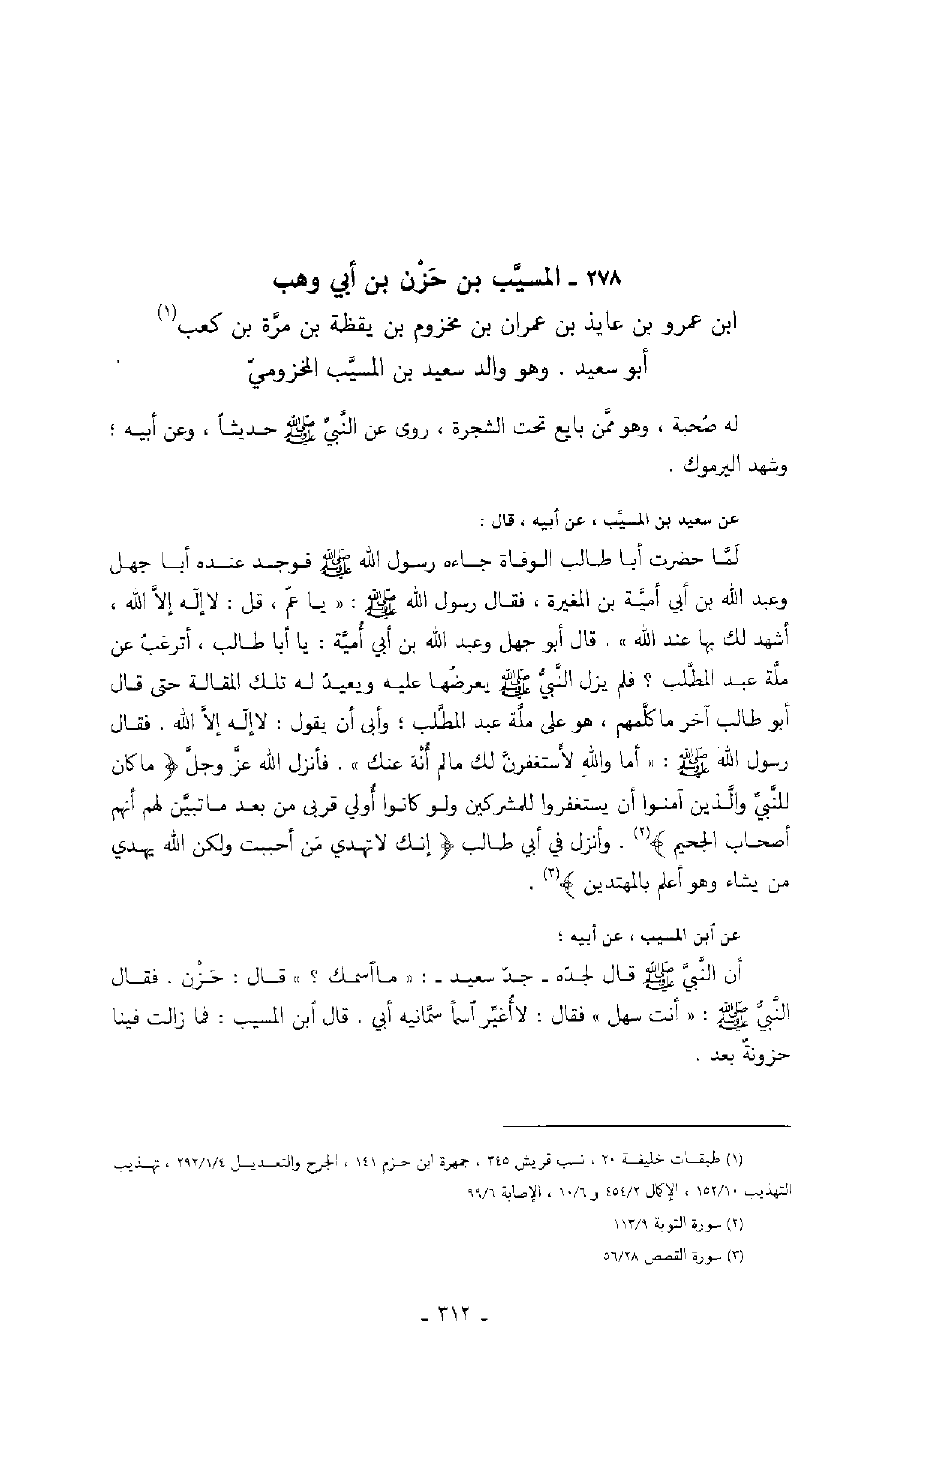 ٢٧٨ ـ المسيَّب بن حَزْن بن أبي وهب
ابن عمرو بن عايذ بن عمران بن مخزوم بن يقظة بن مرَّة بن كعب(١)
أبو سعيد . وهو والد سعيد بن المسيَّب المخزوميّ
له صُحبة ، وهو ممَّن بايع تحت الشجرة ، روى عن النَّبيِّ ﷺ حديثاً ، وعن أبيه ؛
وشهد اليرموك .
عن سعيد بن المسيَّب ، عن أبيه ، قال :
لَمَّا حضرت أبا طالب الوفاة جاءه رسول الله ﷺ فوجد عنده أبا جهل
وعبد الله بن أبي أميَّة بن المغيرة ، فقال رسول الله ﷺ : « يا عمّ ، قل : لاإله إلاَّ الله ،
أشهد لك بها عند الله » . قال أبو جهل وعبد الله بن أبي أُميَّة : يا أبا طالب ، أترغبُ عن
ملَّة عبد المطَّلب ؟ فلم يزل النَّبيُّ ﷺ يعرضُها عليه ويعيدُ له تلك المقالة حتى قال
أبو طالب آخر ماكلَّمهم ، هو على ملَّة عبد المطَّلب ؛ وأبى أن يقول : لاإله إلاَّ الله . فقال
رسول الله ﷺ : « أما والله لأستغفرنَّ لك مالم أُنْهَ عنك » . فأنزل الله عزَّ وجلَّ ﴿ ماكان
للنَّبيِّ والَّذين آمنوا أن يستغفروا للمشركين ولو كانوا أُولي قربى من بعد ماتبيَّن لهم أنهم
أصحاب الجحيم ﴾(٢) . وأنزل في أبي طالب ﴿ إنك لاتهدي مَن أحببت ولكن الله يهدي
من يشاء وهو أعلم بالمهتدين ﴾(٣) .
عن أبن المسيب ، عن أبيه ؛
أن النَّبيَّ ﷺ قال لجدّه ـ جدّ سعيد ـ : « ماآسمك ؟ » قال : حَزْن . فقال
النَّبيُّ ﷺ : « أنت سهل » فقال : لاأُغيّر آسماً سمَّانيه أبي . قال آبن المسيب : فما زالت فينا
حزونةٌ بعد .
(١) طبقات خليفة ٢٠ ، نسب قريش ٣٤٥ ، جمهرة ابن حزم ١٤١ ، الجرح والتعديل ٢٩٢/١/٤ ، تهذيب
التهذيب ١٥٢/١٠ ، الإكمال ٤٥٤/٢ و ١٠/٦ ، الإصابة ٩٩/٦
(٢) سورة التوبة ١١٣/٩
(٣) سورة القصص ٥٦/٢٨
ـ ٣١٢ ـ